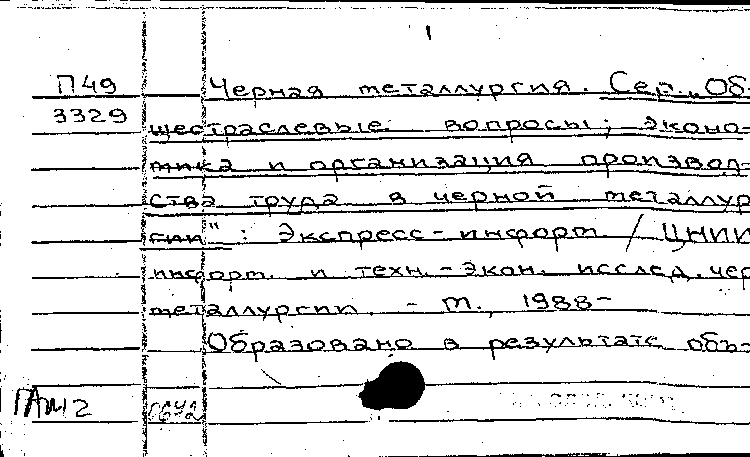 П49
3329
Черная металлургия. Сер. „Об-
щеотраслевые вопросы; эконо-
мика и организация производ-
ства труда в черной металлур
гии": Экспресс-информ. / ЦНИИ
информ. и техн.-экон. исслед. чер
металлургии. - М., 1988-
Образовано в результате объ-
0642